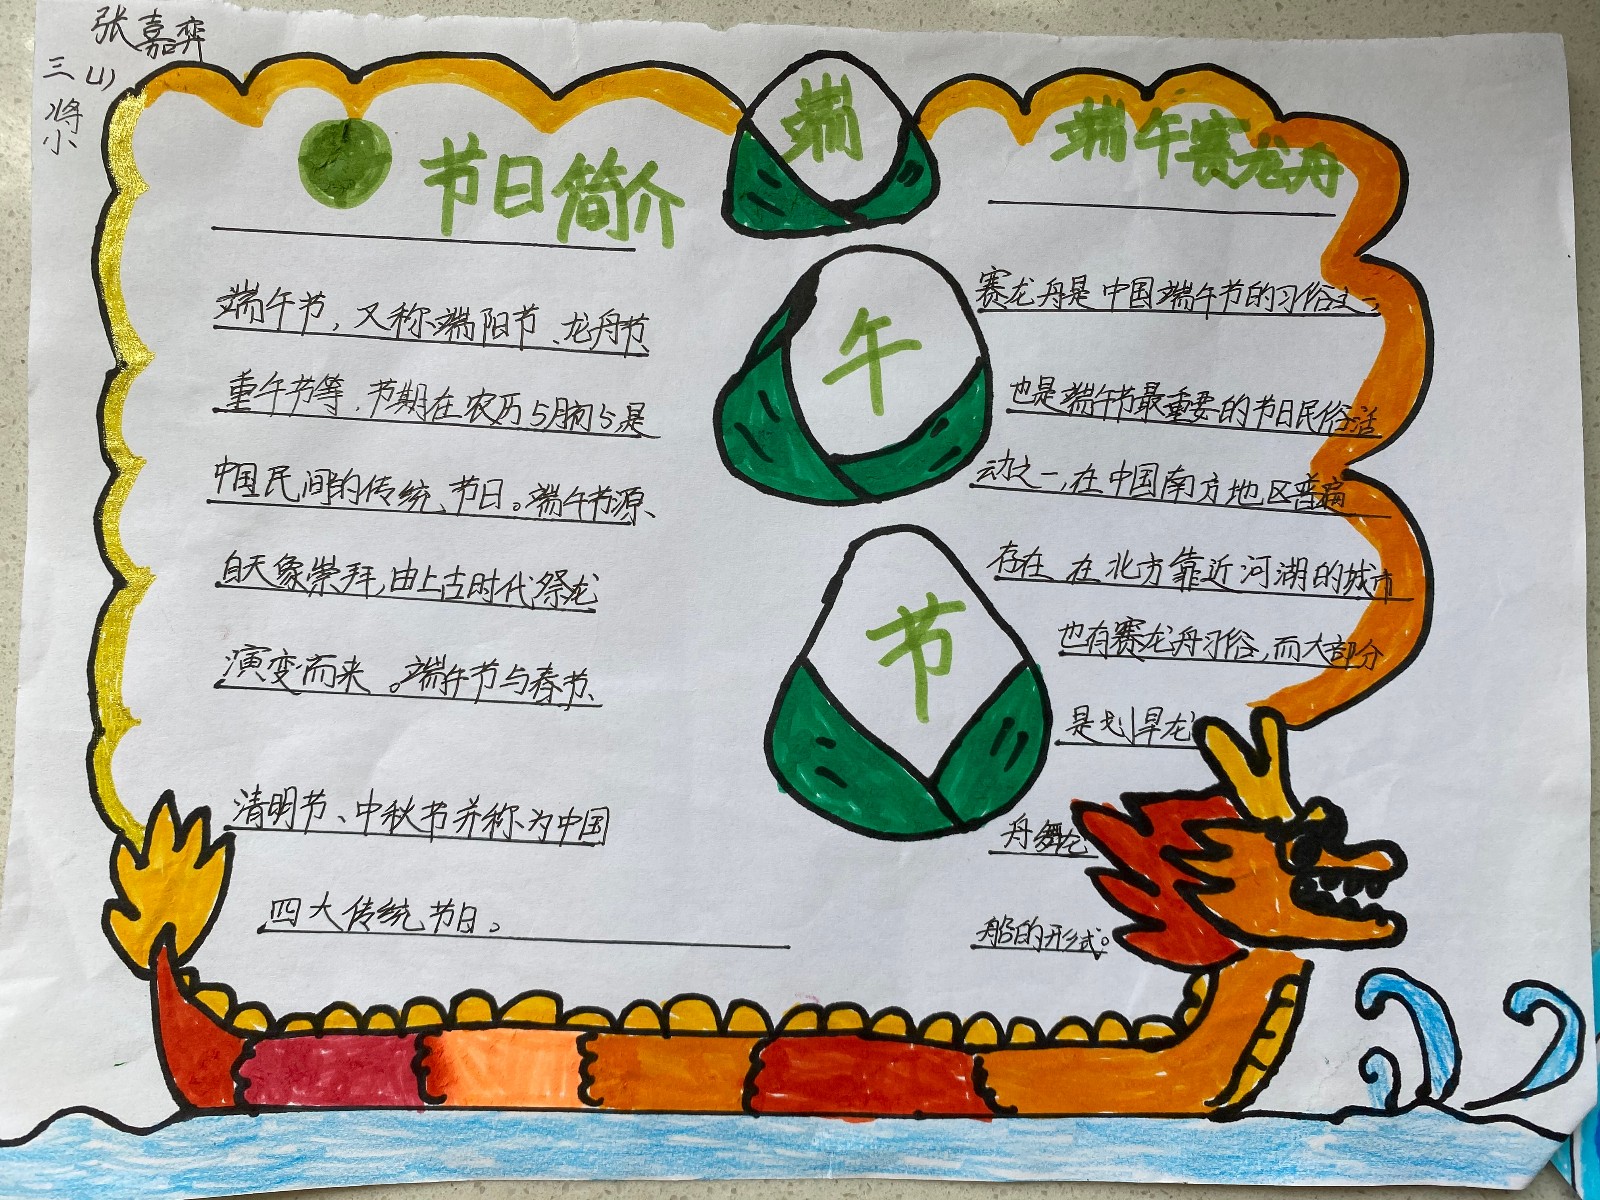 张嘉弈
三(1)
将小
端
午
节
节日简介
端午节，又称端阳节、龙舟节、
重午节等，节期在农历5月初5，是
中国民间的传统节日。端午节源
自天象崇拜，由上古时代祭龙
演变而来。端午节与春节、
清明节、中秋节并称为中国
四大传统节日。
端午赛龙舟
赛龙舟是中国端午节的习俗之一，
也是端午节最重要的节日民俗活
动之一，在中国南方地区普遍
存在，在北方靠近河湖的城市
也有赛龙舟习俗，而大部分
是划旱龙
舟舞龙
船的形式。